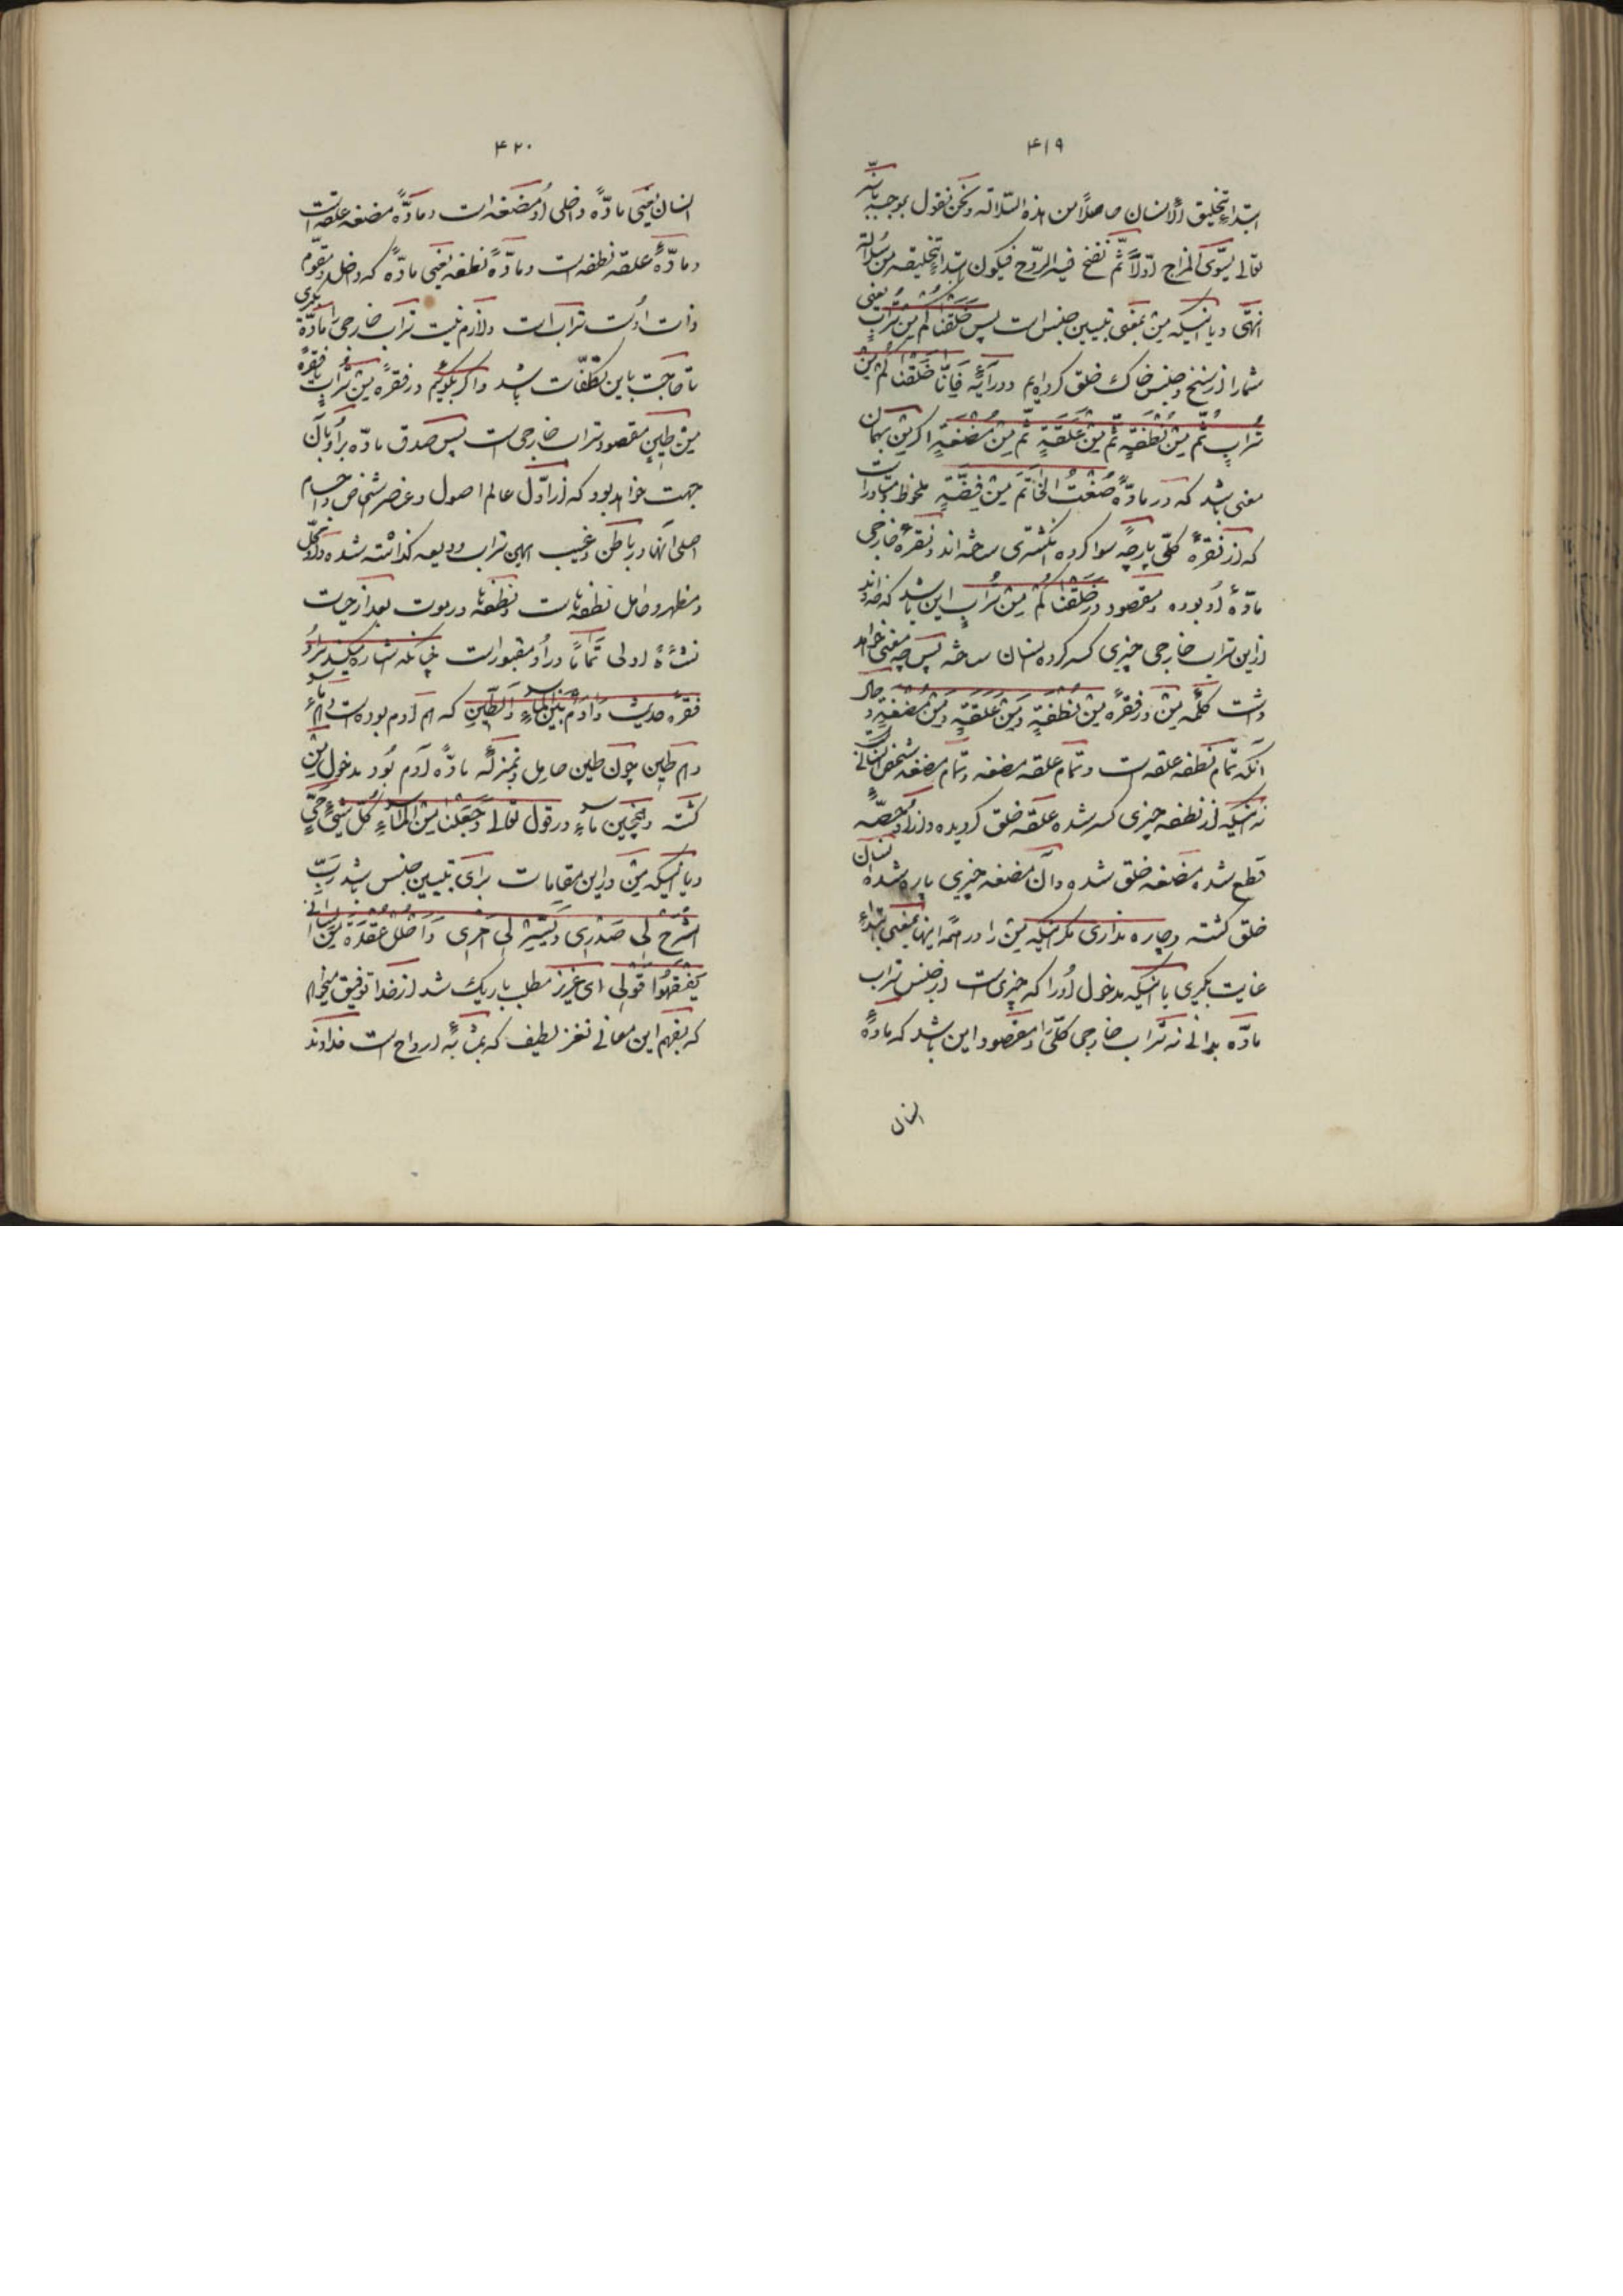 ۴۱۹
ابتداء تخلیق الانسان حاصلاً من هذه السلاله ونحن نقول بموجبه بانه
تعالی یسوّی المزاج اوّلاً ثمّ نفخ فیه الروح فیکون ابتداء تخلیقه من سلالة
انتهی و یا اینکه مِنْ بمعنی تبیین جنس است پس خَلَقْناکُمْ مِنْ تُرابٍ یعنی
شما را از سنخ و جنس خاک خلق کرده‌ایم و در آیهٔ فَاِنّا خَلَقْناکُمْ مِنْ
تُرابٍ ثُمَّ مِنْ نُطْفَةٍ ثُمَّ مِنْ عَلَقَةٍ ثُمَّ مِنْ مُضْغَةٍ اگر مِنْ بهمان
معنی باشد که در مادّهٔ صُغْتُ الخاتَمَ مِنْ فِضَّةٍ ملحوظ و متبادر است
که از نقرهٔ کلّی پارچه سوا کرده انگشتری ساخته‌اند و نقرهٔ خارجی
مادّهٔ او بوده و مقصود در خَلَقْناکُمْ مِنْ تُرابٍ این باشد که خداوند
از این تراب خارجی چیزی کسر کرده انسان ساخته پس چه معنی خواهد
داشت کلمه مِنْ در فقره مِنْ نُطْفَةٍ وَمِنْ عَلَقَةٍ وَمِنْ مُضْغَةٍ و حال
آنکه تمام نطفه علقه است و تمام علقه مضغه و تمام مضغه شخص انسانی است
نه اینکه از نطفه چیزی کسر شده علقه خلق گردیده و از او حصّهٔ
قطع شده مضغه خلق شده و از آن مضغه چیزی پاره شده انسان
خلق گشته و چاره نداری مگر اینکه مِنْ را در همه اینها بمعنی ابتداء
غایت بگیری یا اینکه مدخول او را که چیزی است از جنس تراب
مادّه بدانی نه تراب خارجی کلّی را و مقصود این باشد که مادهٔ
انسان
۴۲۰
انسان یعنی مادّه داخلی او مضغه است و مادّهٔ مضغه علقه است
و مادّهٔ علقه نطفه است و مادّهٔ نطفه یعنی مادّهٔ که داخل و مقوّم
ذات اوست تراب است و لازم نیست تراب خارجی را مادّه بگیری
تا حاجت باین تکلّفات باشد و اگر بگوئیم در فقرهٔ مِنْ تُرابٍ یا فقرهٔ
مِنْ طِینٍ مقصود تراب خارجی است پس صدق مادّه بر او بآن
جهت خواهد بود که از اوّل عالم اصول و عنصر شخاص و اجسام
اصلی آنها در باطن و غیب این تراب ودیعه گذاشته شده و او محلّ
و مظهر و حامل نطفه‌ها است و نطفه‌ها در موت بعد از حیات
نشأهٔ اولی تماماً در او مقبور است چنانکه اشاره میکند بر او
فقره حدیث وَآدَمُ بَیْنَ الماءِ وَالطّینِ که هم آدم بوده است و هم ماء
و هم طین چون طین حامل و بمنزلهٔ مادّه آدم بود مدخول مِنْ
گشته و همچنین ماء در قول تعالی وَجَعَلْنا مِنَ الْماءِ کُلَّ شَیْءٍ حَیٍّ
و یا اینکه مِنْ در این مقامات برای تبیین جنس باشد رَبِّ
اشْرَحْ لی صَدْری وَیَسِّرْ لی اَمْری وَاحْلُلْ عُقْدَةً مِنْ لِسانی
یَفْقَهُوا قَوْلی ای عزیز مطلب باریک شد از خدا توفیق میخواهم
که بفهم این معانی نغز لطیف که بمثابهٔ ارواح است خداوند